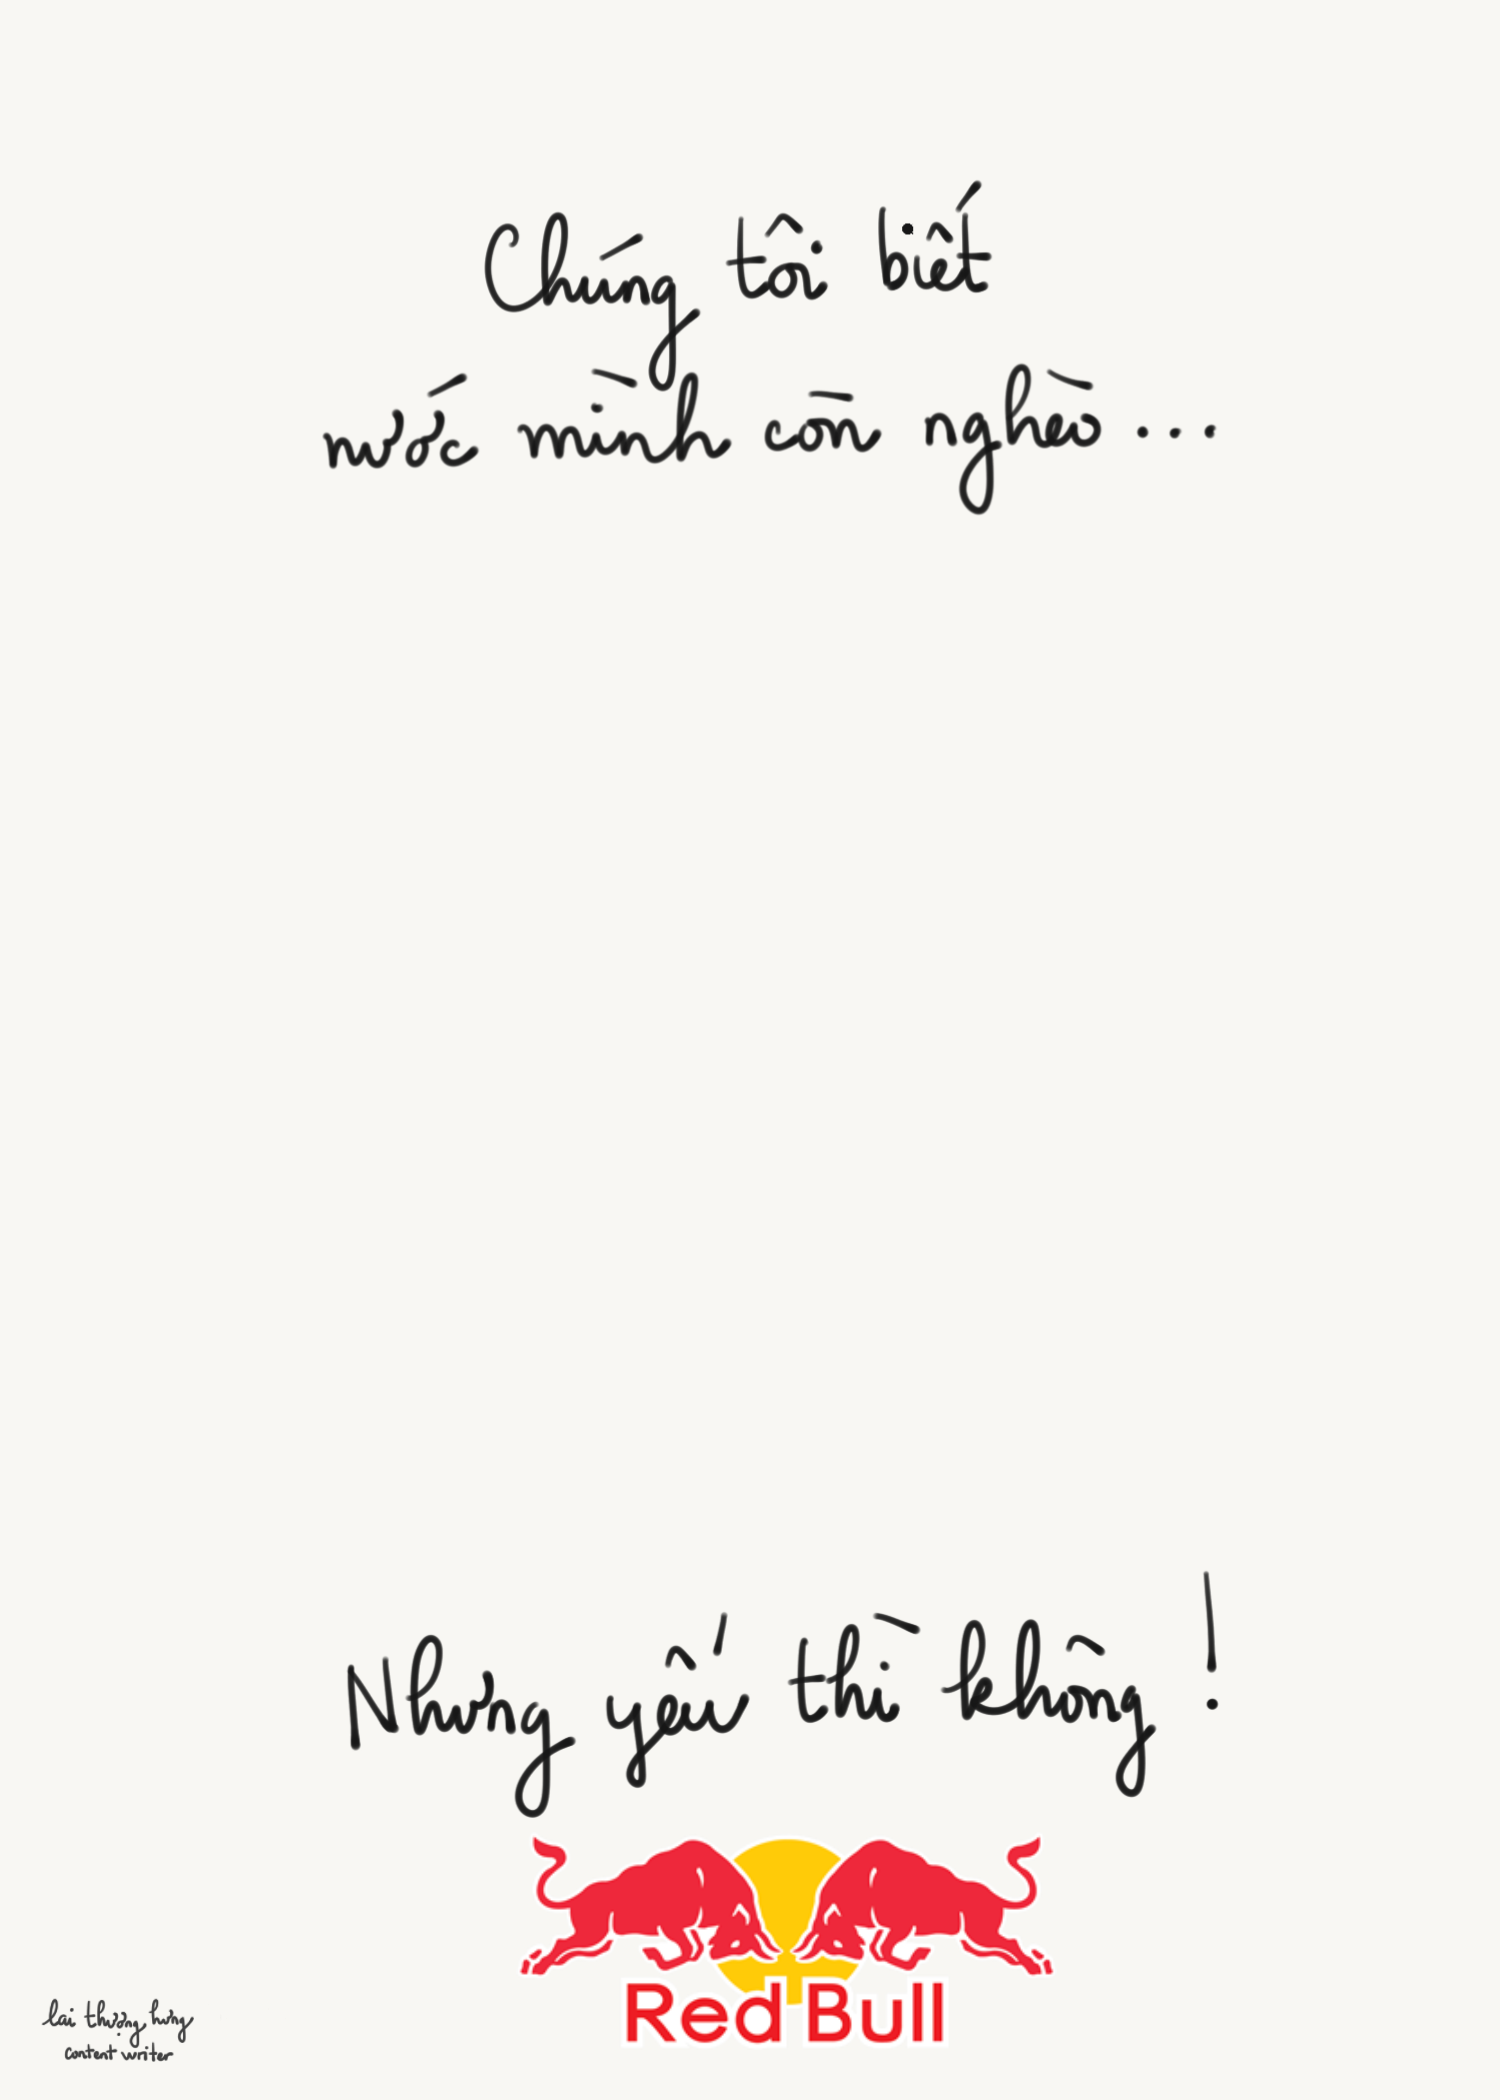 Chúng tôi biết
nước mình còn nghèo...
Nhưng yếu thì không!
Red Bull
lai thượng hưng
content writer